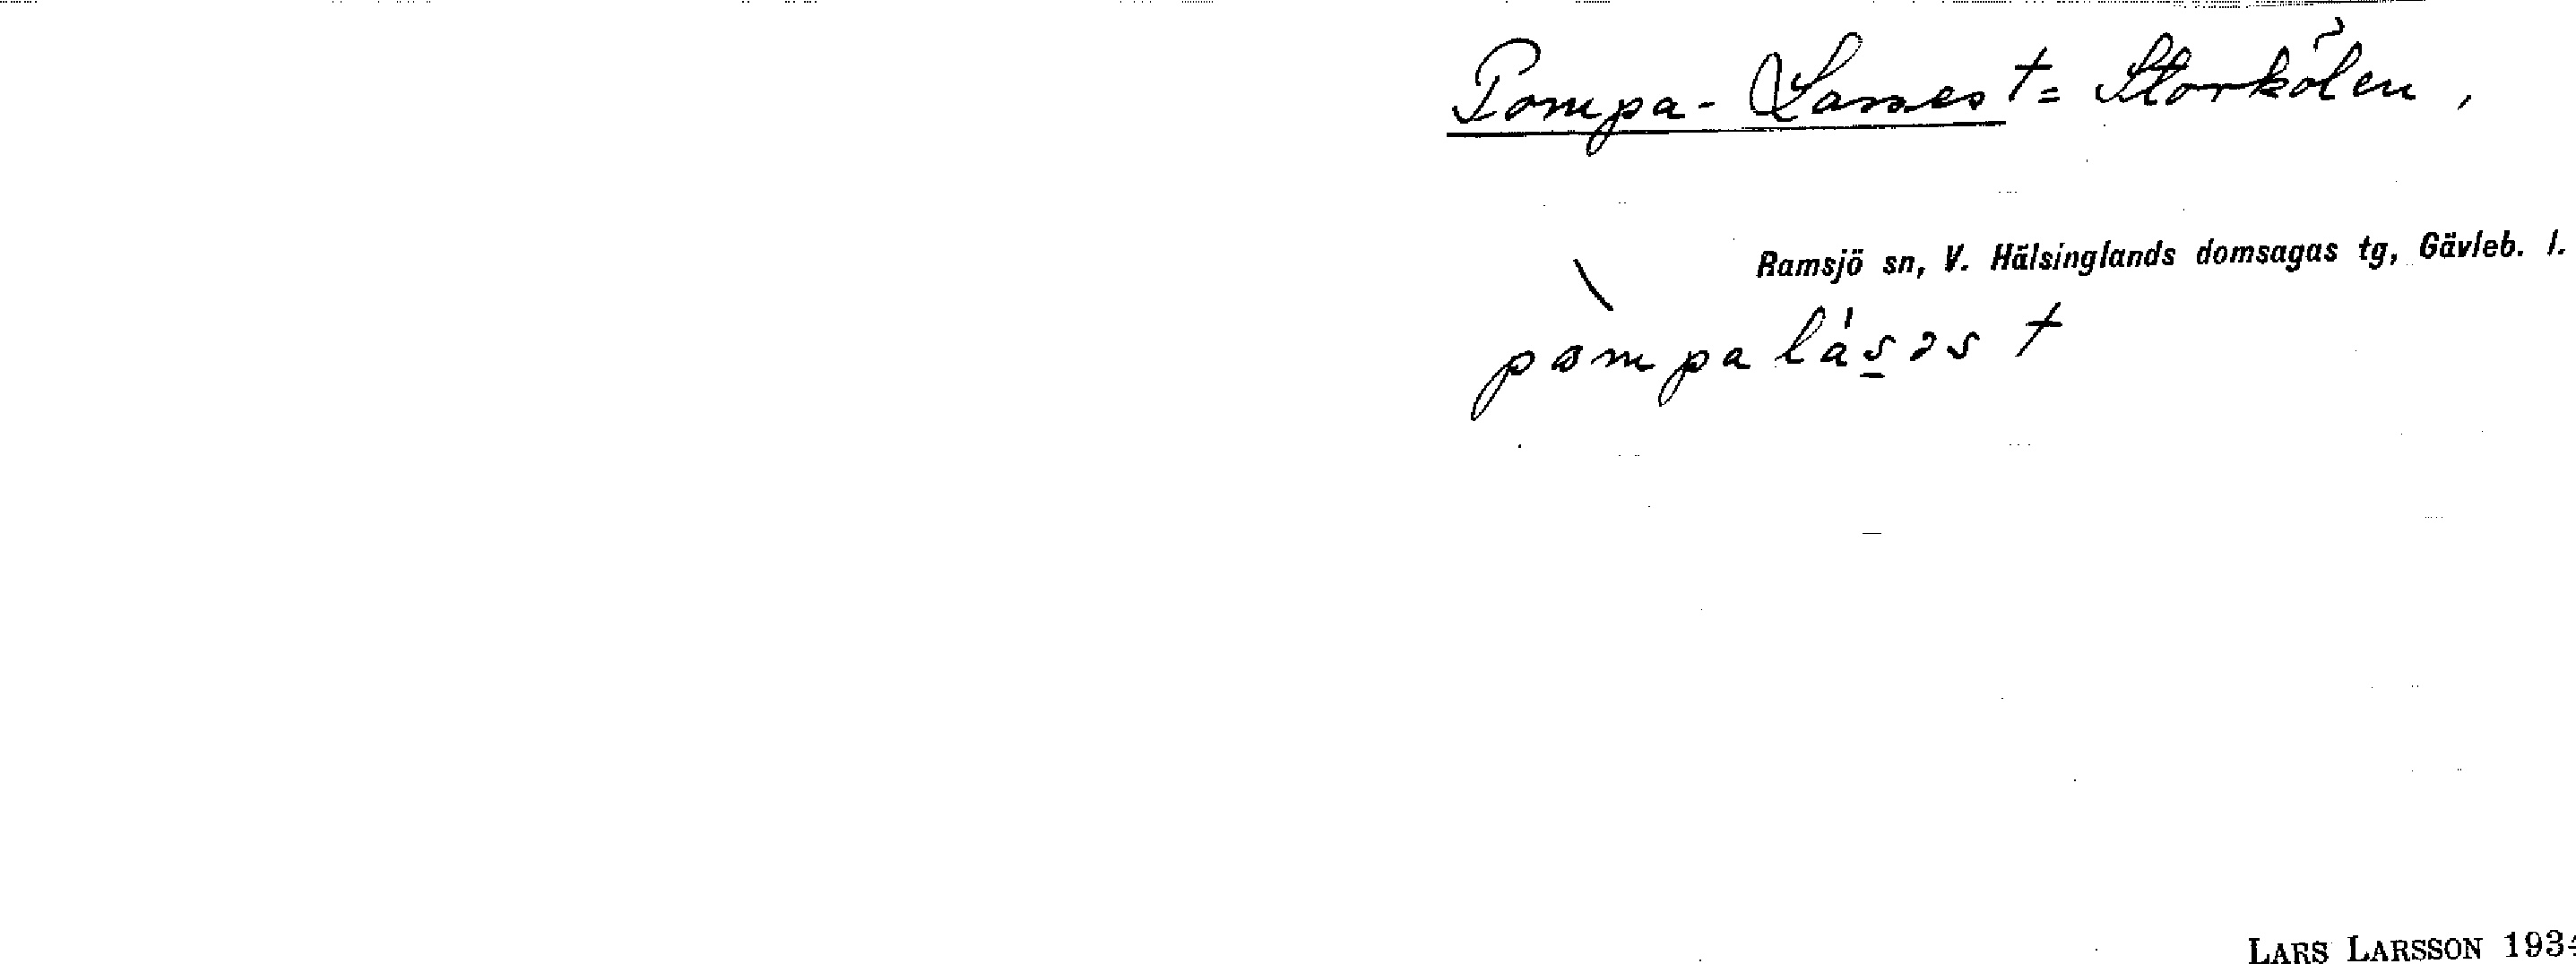 Pompa-Lasses †= Storkölen,
Ramsjö sn, V. Hälsinglands domsagas tg, Gävleb. l.
pòmpa lásəs †
LARS LARSSON 1934